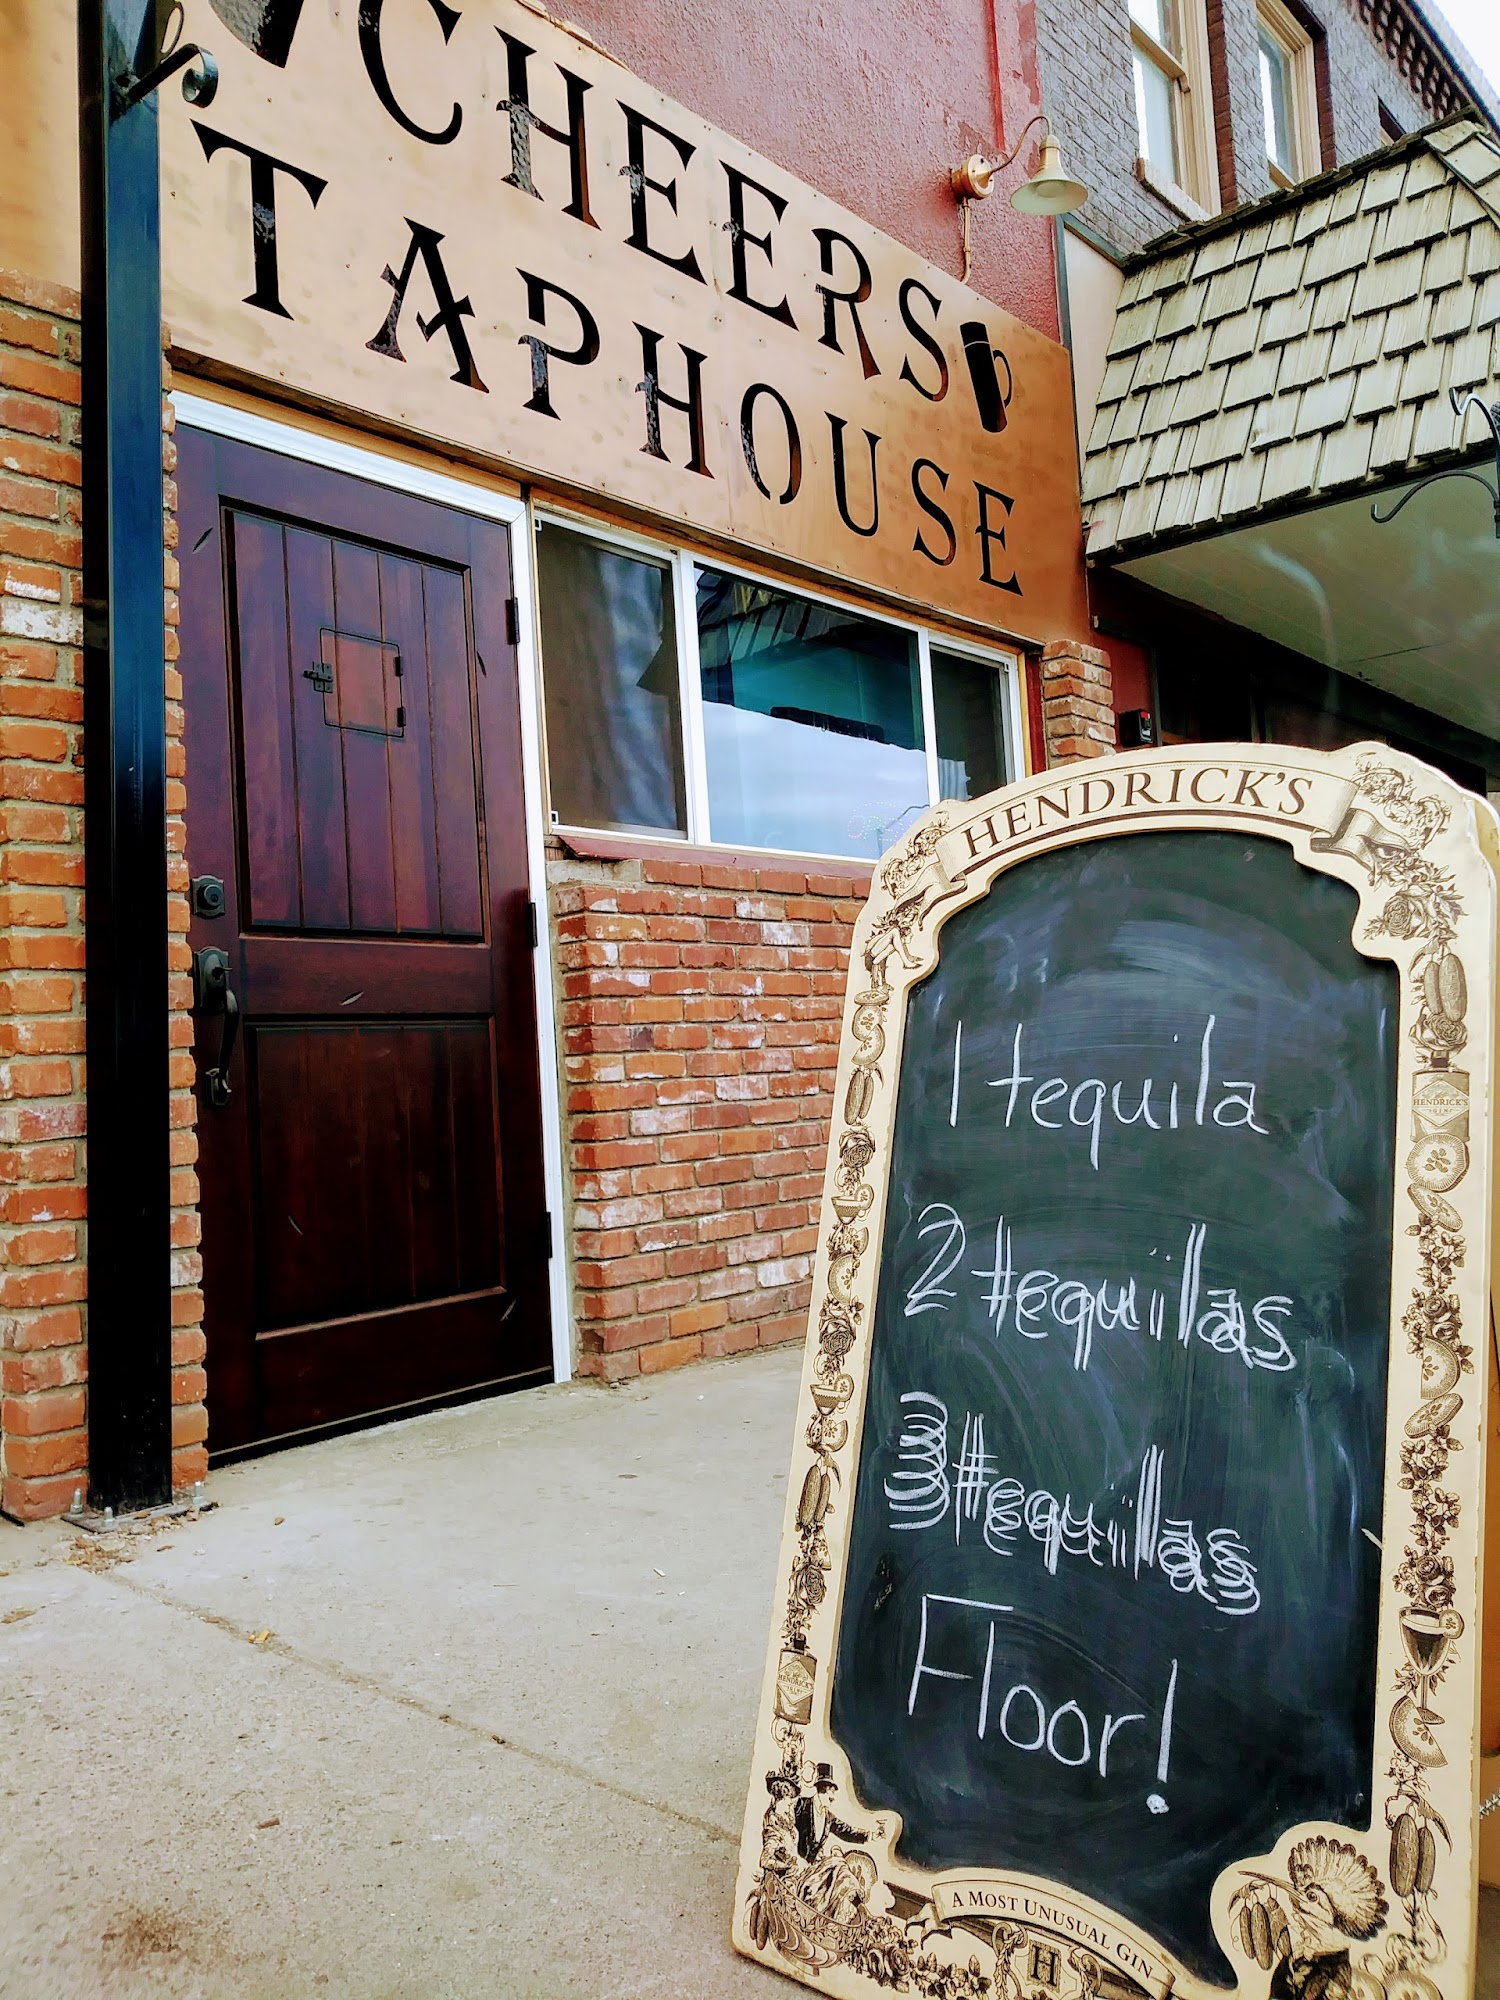 CHEERS
TAPHOUSE
HENDRICK'S
1 tequila
2 tequilas
3 tequilas
Floor!
HENDRICK'S
GIN
HENDRICK'S
A MOST UNUSUAL GIN
H